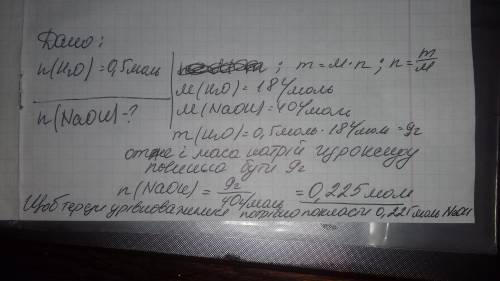 Дано:
n(H₂O)=0,5моль
n(NaOH)-?
; m=M·n; n=m/M
M(H₂O)=18г/моль
M(NaOH)=40г/моль
m(H₂O)=0,5моль·18г/моль=9г
отже і маса натрій гідроксиду
повинна бути 9г
n(NaOH)=9г/40г/моль=0,225моль
Щоб терези урівноважити потрібно покласти 0,225моль NaOH